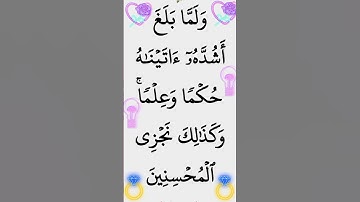 وَلَمَّا بَلَغَ
أَشُدَّهُۥٓ ءَاتَيْنَٰهُ
حُكْمًا وَعِلْمًا ۚ
وَكَذَٰلِكَ نَجْزِى
ٱلْمُحْسِنِينَ